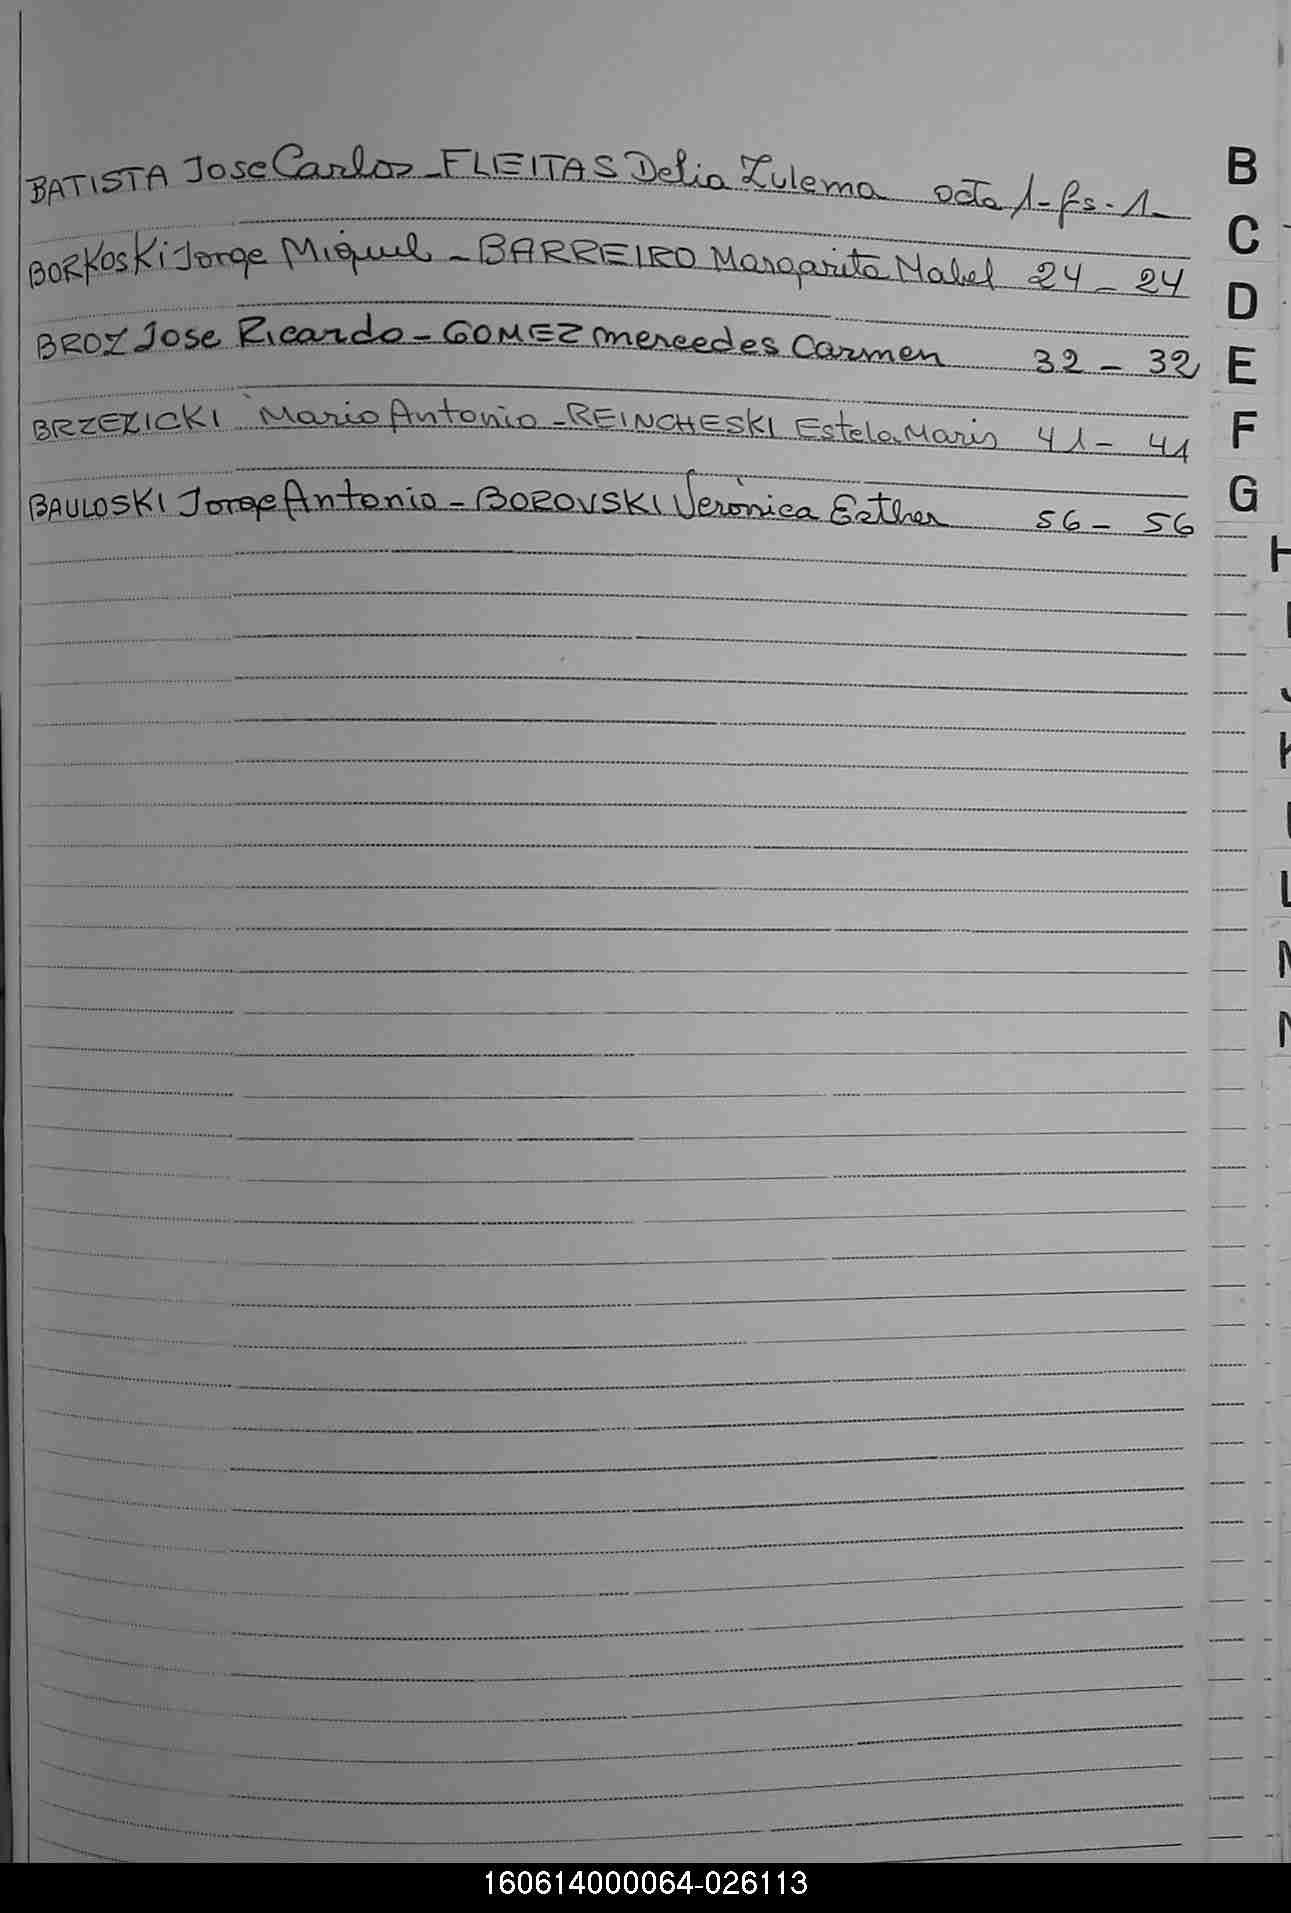 BATISTA Jose Carlos - FLEITAS Delia Zulema acta 1 - fs. 1 -
BORKOSKI Jorge Miguel - BARREIRO Margarita Mabel 24 - 24
BROZ Jose Ricardo - GOMEZ Mercedes Carmen 32 - 32
BRZEZICKI Mario Antonio - REINCHESKI Estela Maris 41 - 41
BAULOSKI Jorge Antonio - BOROVSKI Verónica Esther 56 - 56
B
C
D
E
F
G
H
I
J
K
L
L
M
N
160614000064-026113